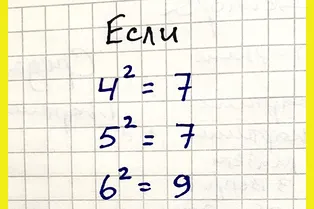 Если
4² = 7
5² = 7
6² = 9